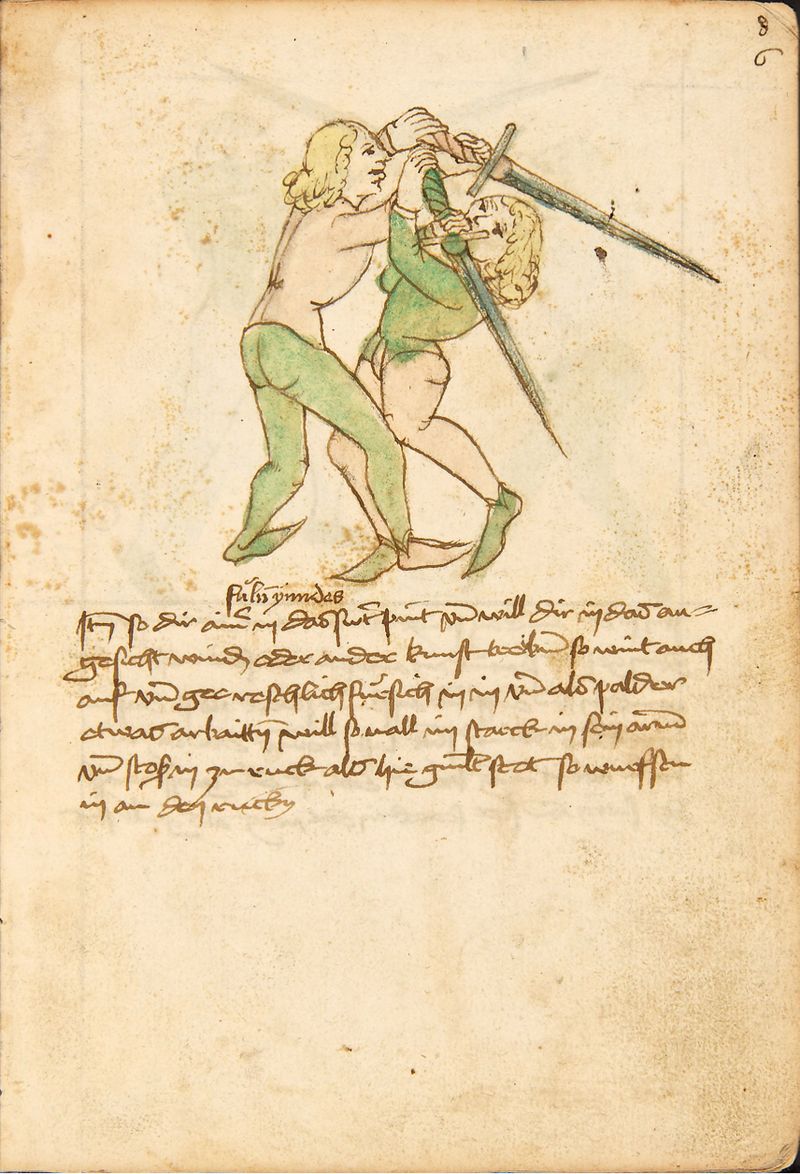 8
6
fuln yindes
Itm so dir ainer in das swert pint vnd will dir in das an=
gesicht winden oder ander kunst treiben so wint auch
auf vnd gee reschlich fuer sich in in vnd als palder
etwas arbaitten will so uall im starck in sein arm
vnd stos in zu ruck als hie gmalt stet so wurfstu
in an den rucken